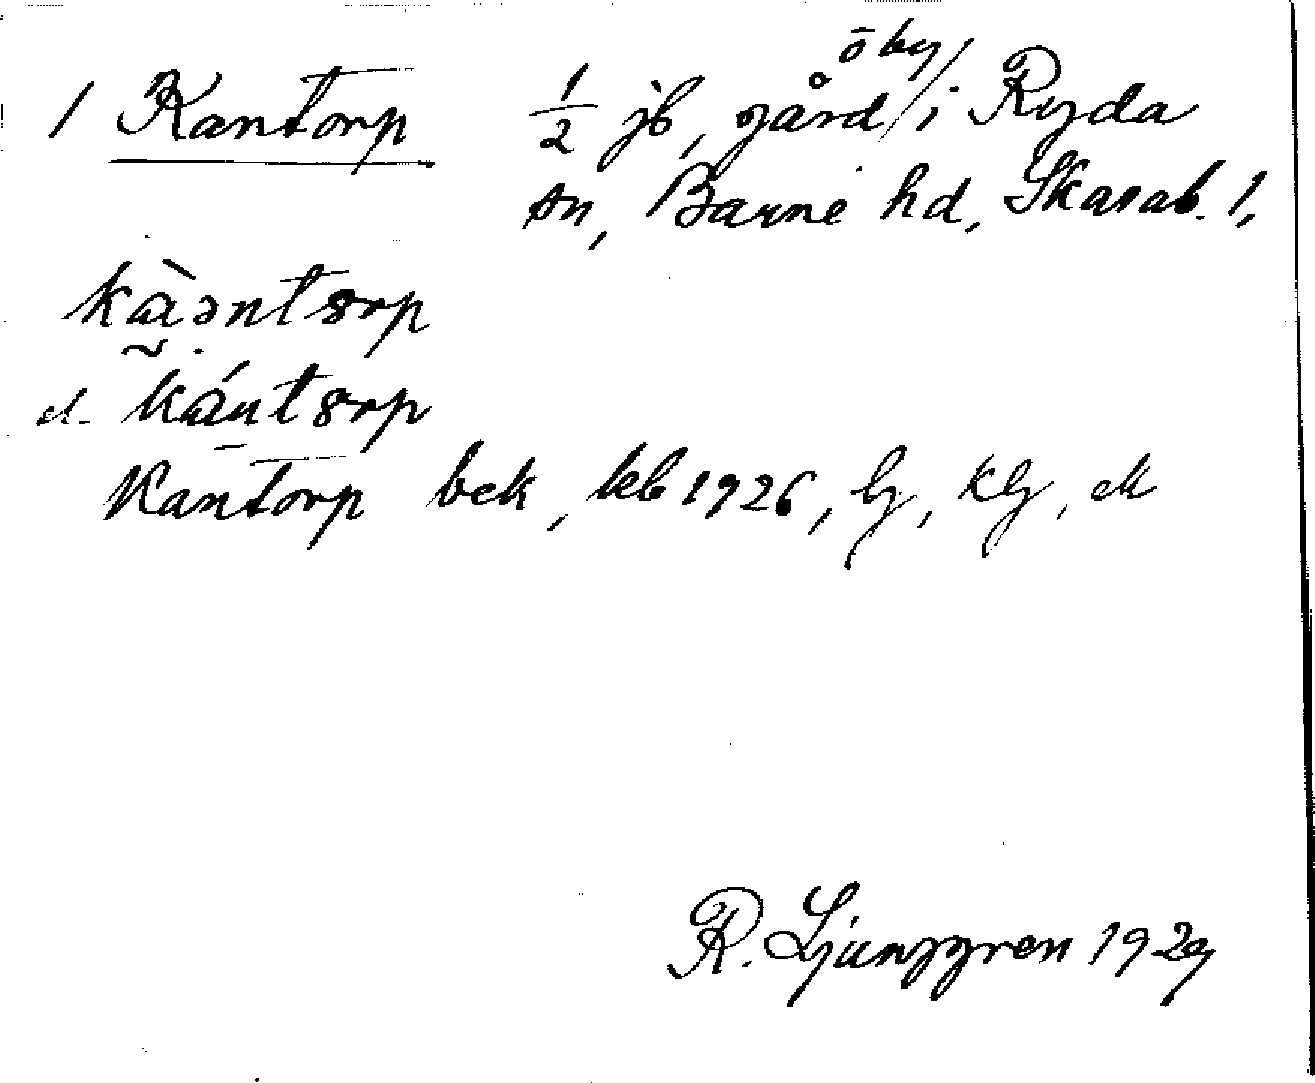 1 Kantorp ½ jb, gård /ö by/ i Ryda
sn, Barne hd, Skarab. l.
kàəntorp
el. kántorp
Kantorp bek, kb 1926, lg, klg, ek
R. Ljunggren 1929